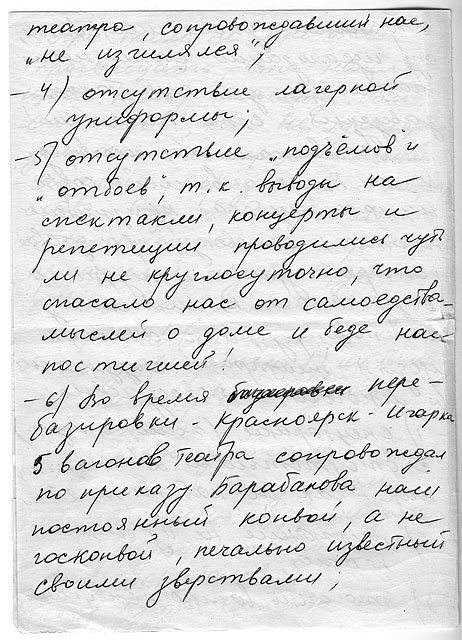 театра, сопровождавший нас,
„не изгилялся”;
– 4) отсутствие лагерной
униформы;
– 5) отсутствие „подъёмов” и
„отбоев”, т.к. выводы на
спектакли, концерты и
репетиции проводились чуть
ли не круглосуточно, что
спасало нас от самоедства-
мыслей о доме и беде нас
постигшей!
– 6) Во время пере-
базировки - Красноярск - Игарка
5 вагонов театра сопровождал
по приказу Барабанова наш
постоянный конвой, а не
госконвой, печально известный
своими зверствами;